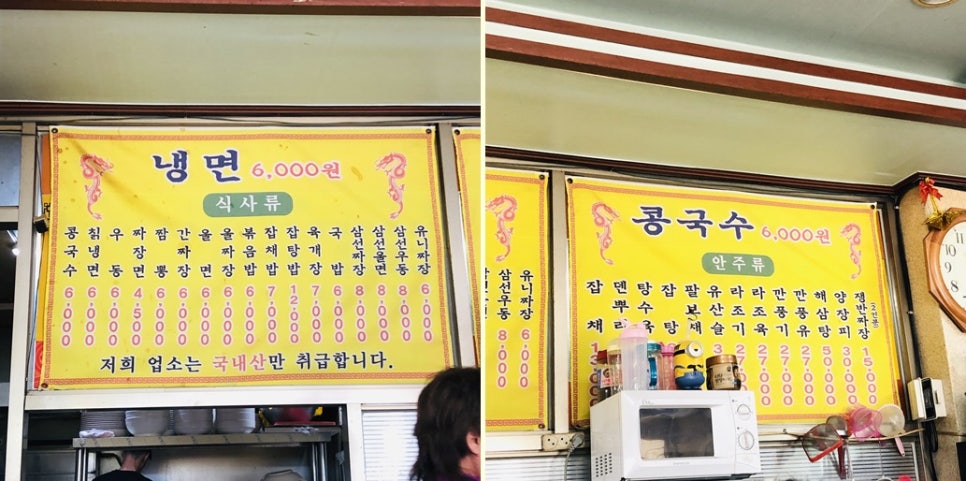 냉면 6,000원
식사류
콩국수 6,000
칡냉면 6,000
우동 6,000
짜장면 4,500
짬뽕 6,000
간짜장 6,000
울면 6,000
6,000
볶음밥 6,000
잡채밥 7,000
잡탕밥 12,000
육개장 7,000
국밥 6,000
삼선짜장 8,000
삼선울면 8,000
삼선우동 8,000
유니짜장 6,000
저희 업소는 국내산만 취급합니다.
삼선우동 8,000
유니짜장 6,000
콩국수 6,000원
안주류
잡채
덴뿌라
탕수육
잡탕
팔보채
유산슬
라조기 27,000
라조육 27,000
깐풍기 27,000
깐풍육 27,000
해삼탕 50,000
양장피 30,000
쟁반짜장(2인분) 15,000